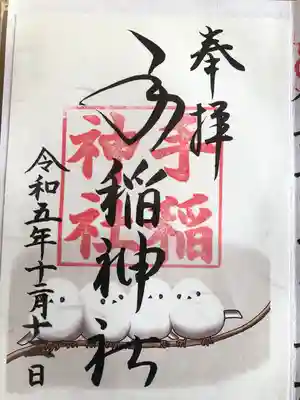 奉拝
手稲神社
手稲
神社
令和五年十二月十六日